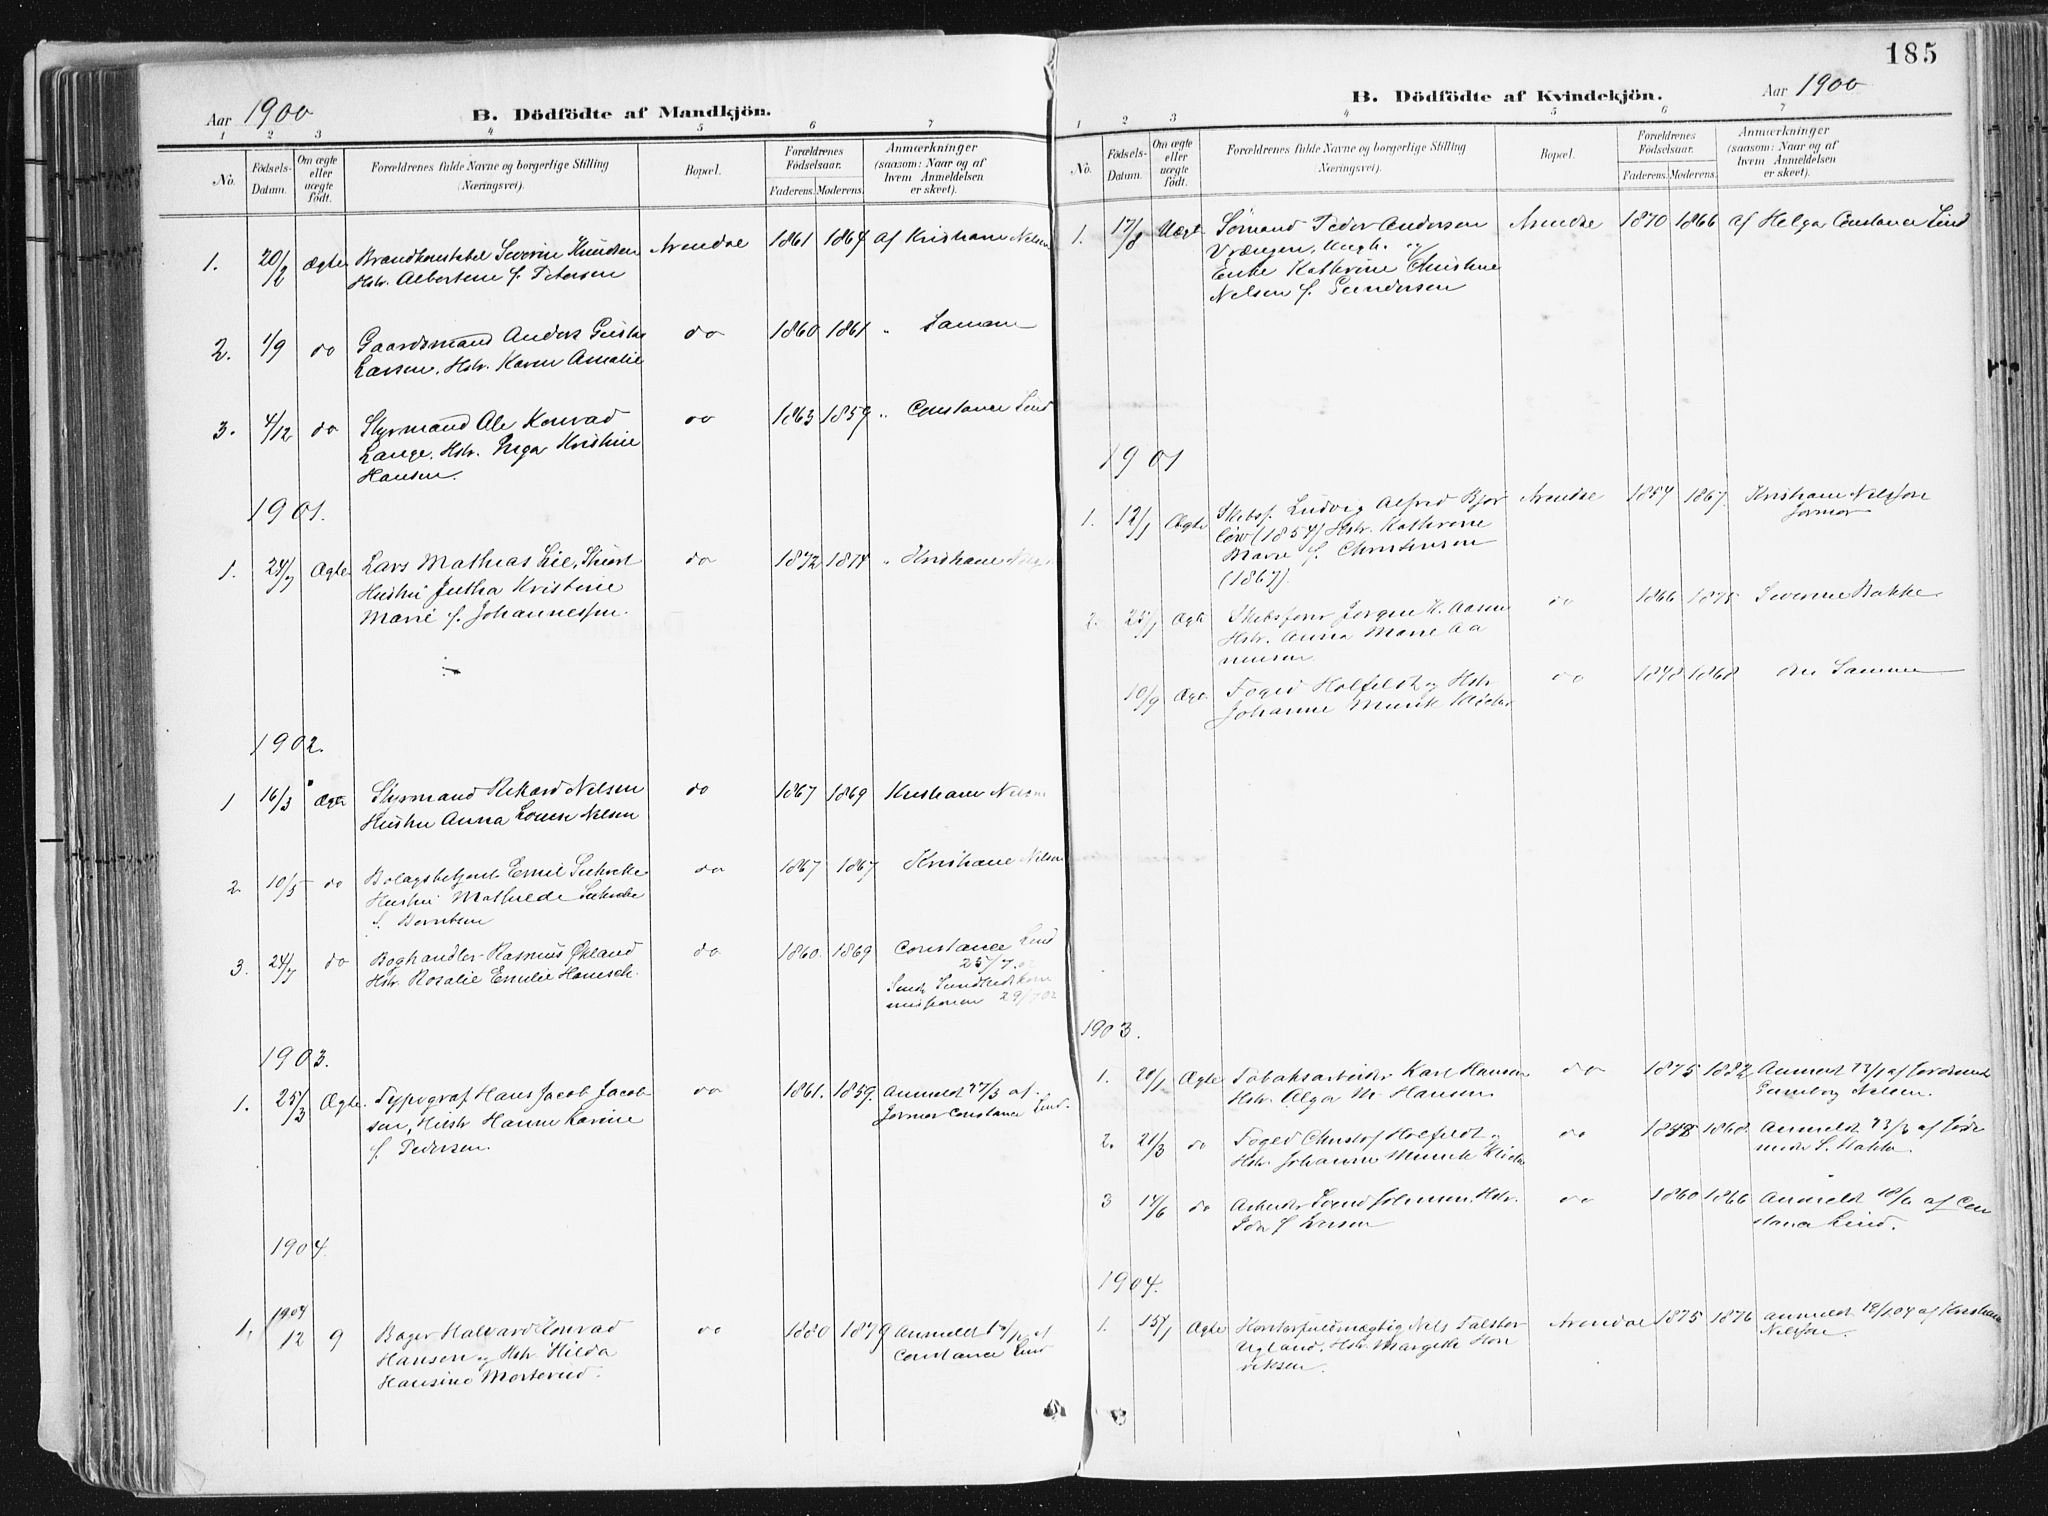 185
Aar 1900
B. Dödfödte af Mandkjön.
1 2 3 4 5 6 7
No.
Födsels-Datum.
Om ægte eller uægte født.
Forældrenes fulde Navne og borgerlige Stilling (Næringsvei).
Bopæl.
Forældrenes Födselsaar.
Faderens. Moderens.
Anmærkninger (saasom: Naar og af hvem Anmeldelsen er skeet).
1. 20/2 Ægte Brandkonstabel Severin Knudsen Arendal 1861 1864 af Kristiane Nilsen
Hstr. Albertine f. Petersen
2. 1/9 do Gaardsmand Anders Gustav do 1860 1861 " Samme
Larsen, Hstr. Karen Amalie
3. 4/12 do Styrmand Ole Konrad do 1863 1859 " Constance Lind
Lange, Hstr. Inga Kristine
Hansen.
1901.
1. 24/7 Ægte Lars Mathias Lie, do 1872 1874 " Kristiane
Hustru Jutha Kristine
Marie f. Johannessen.
1902.
1 16/3 Ægte Styrmand Rikard Nilsen do 1867 1869 Kristiane Nilsen
Hustru Anna Louise Nilsen
2. 10/5 do Bolagsbetjent Emil do 1867 1867 Kristiane Nilsen
Hustru Mathilde
f. Berntsen
3. 24/7 do Boghandler Rasmus Økland do 1860. 1869 Constance Lind
25/7.02
Hstr. Rosalie Emilie
Sendt Sundhedskom
missionen 29/7 02
1903.
1. 25/3 Ægte. Typograf Hans Jacob Jacob do 1861. 1859. Anmeldt 27/3 af
sen, Hustr Hanne Karine Jormor Constance Lind.
f. Pedersen.
1904.
1. 1904
12 9 Bager Halvard Konrad do 1880 1879 Anmeldt af
Hansen og Hstr. Hilda Constance Lind
Hansine Morterud.
B. Dödfödte af Kvindekjön.
Aar 1900
1 2 3 4 5 6 7
No.
Födsels-Datum.
Om ægte eller uægte født.
Forældrenes fulde Navne og borgerlige Stilling (Næringsvei).
Bopæl.
Forældrenes Födselsaar.
Faderens. Moderens.
Anmærkninger (saasom: Naar og af hvem Anmeldelsen er skeet).
1. 17/8 Uægt Sømand Peder Andersen Arendal 1870 1866 af Helga Constance Lind
Vrængen, Ungk. og
Enke Kathrine Christine
Nelsen f. Gundersen
1901
1. 12/1 Ægte Skibsf. Ludvig Alfred Bjor Arendal 1854 1867. Kristiane Nilssen
(1854) Hstr. Kathrine Jormor
Marie f. Christensen
(1867).
2. 25/7 Ægte Skibsfører Jørgen K. Aasmu do 1866 1875 Severine Bakke
Hstr. Anna Marie Aa
musen
10/9 Ægt. Foged Holfeldt og Hstr. do 1848 1868 do Samme
Johanne Munk
1903.
1. 20/1 Ægte Tobaksarbeider Karl Hansen do 1875 1882 Anmeldt 23/1 af Jordmod
Hstr. Olga M. Hansen. Gunborg Nilsen.
2. 21/3 do Foged Christof Holfeldt og do 1848 1868. Anmeldt 23/3 af
Hstr. Johanne Munk S. Bakke.
3 14/6 do Arbeider Hstr. do 1860 1866 Anmeldt 18/6 af Con
Ida f. stance Lind.
1904.
1. 15/1 Ægte Kontorfuldmægtig Nils Arendal 1875 1876 Anmeldt 18/1 04 af Kristiane
Ugland, Hstr. Margethe Hen Nilssen.
riksen.